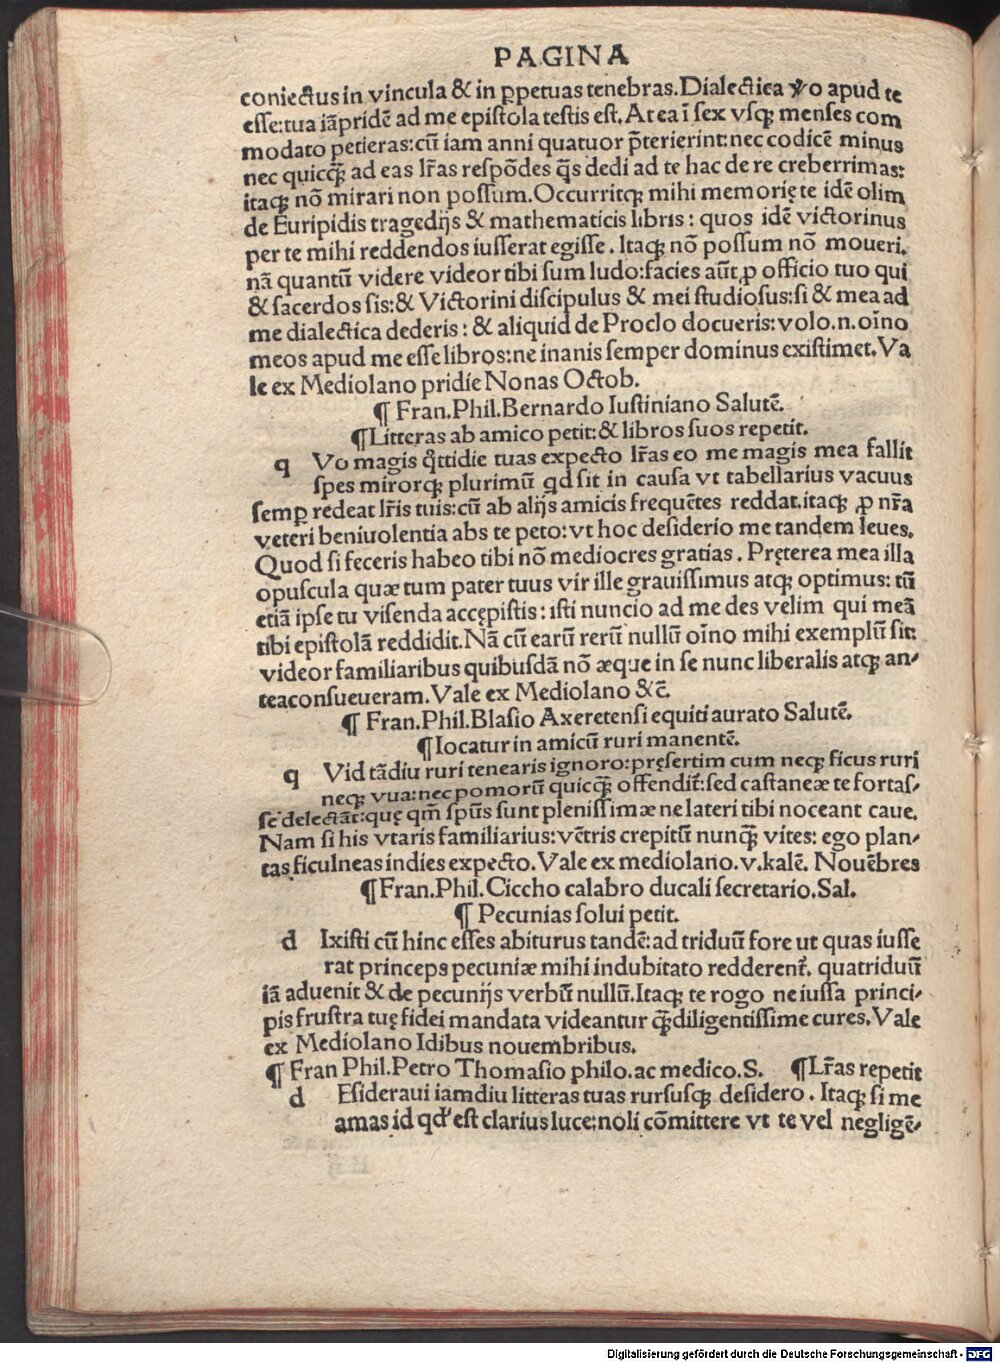 PAGINA
coniectus in vincula & in ꝑpetuas tenebras.Dialectica ꝟo apud te
esse:tua iãpridẽ ad me epistola testis est.At ea ĩ sex vsqꝫ menses com
modato petieras:cũ iam anni quatuor p̃terierint:nec codicẽ minus
nec quicq̃ꝫ ad eas lr̃as respõdes q̃s dedi ad te hac de re creberrimas:
itaqꝫ nõ mirari non possum.Occurritqꝫ mihi memorię te idẽ olim
de Euripidis tragedijs & mathematicis libris: quos idẽ victorinus
per te mihi reddendos iusserat egisse. Itaqꝫ nõ possum nõ moueri.
nã quantũ videre videor tibi sum ludo:facies aũt ꝓ officio tuo qui
& sacerdos sis:& Victorini discipulus & mei studiosus:si & mea ad
me dialectica dederis: & aliquid de Proclo docueris:volo.n.oĩno
meos apud me esse libros:ne inanis semper dominus existimet.Va
le ex Mediolano pridie Nonas Octob.
¶ Fran.Phil.Bernardo Iustiniano Salutẽ.
¶Litteras ab amico petit:& libros suos repetit.
q Vo magis q̃ttidie tuas expecto lr̃as eo me magis mea fallit
spes mirorqꝫ plurimũ qd sit in causa vt tabellarius vacuus
semꝑ redeat lr̃is tuis:cũ ab alijs amicis frequẽtes reddat.itaqꝫ ꝓ nr̃a
veteri beniuolentia abs te peto:vt hoc desiderio me tandem leues.
Quod si feceris habeo tibi nõ mediocres gratias. Pręterea mea illa
opuscula quæ tum pater tuus vir ille grauissimus atqꝫ optimus: tũ
etiã ipse tu visenda accępistis: isti nuncio ad me des velim qui meã
tibi epistolã reddidit.Nã cũ earũ rerũ nullũ oĩno mihi exemplũ sit:
videor familiaribus quibusdã nõ æque in se nunc liberalis atqꝫ an-
teaconsueueram.Vale ex Mediolano &c̃.
¶ Fran.Phil.Blasio Axeretensi equiti aurato Salutẽ.
¶Iocatur in amicũ ruri manentẽ.
q Vid tãdiu ruri tenearis ignoro:pręsertim cum neqꝫ ficus ruri
neqꝫ vua:nec pomorũ quicq̃ꝫ offendit̃:sed castaneæ te fortas-
se delectãt:quę qm̃ spũs sunt plenissimæ ne lateri tibi noceant caue.
Nam si his vtaris familiarius:vẽtris crepitũ nunq̃ꝫ vites: ego plan-
tas ficulneas indies expecto.Vale ex mediolano.v.kalẽ. Nouẽbres
¶Fran.Phil.Ciccho calabro ducali secretario.Sal.
¶ Pecunias solui petit.
d Ixisti cũ hinc esses abiturus tandẽ:ad triduũ fore ut quas iusse
rat princeps pecuniæ mihi indubitato redderent̃. quatriduũ
iã aduenit & de pecunijs verbũ nullũ.Itaqꝫ te rogo ne iussa princi-
pis frustra tuę fidei mandata videantur q̃ꝫdiligentissime cures.Vale
ex Mediolano Idibus nouembribus.
¶ Fran Phil.Petro Thomasio philo.ac medico.S. ¶Lr̃as repetit
d Esideraui iamdiu litteras tuas rursusqꝫ desidero. Itaqꝫ si me
amas id qd' est clarius luce:noli cõmittere vt te vel negligẽ-
Digitalisierung gefördert durch die Deutsche Forschungsgemeinschaft - DFG